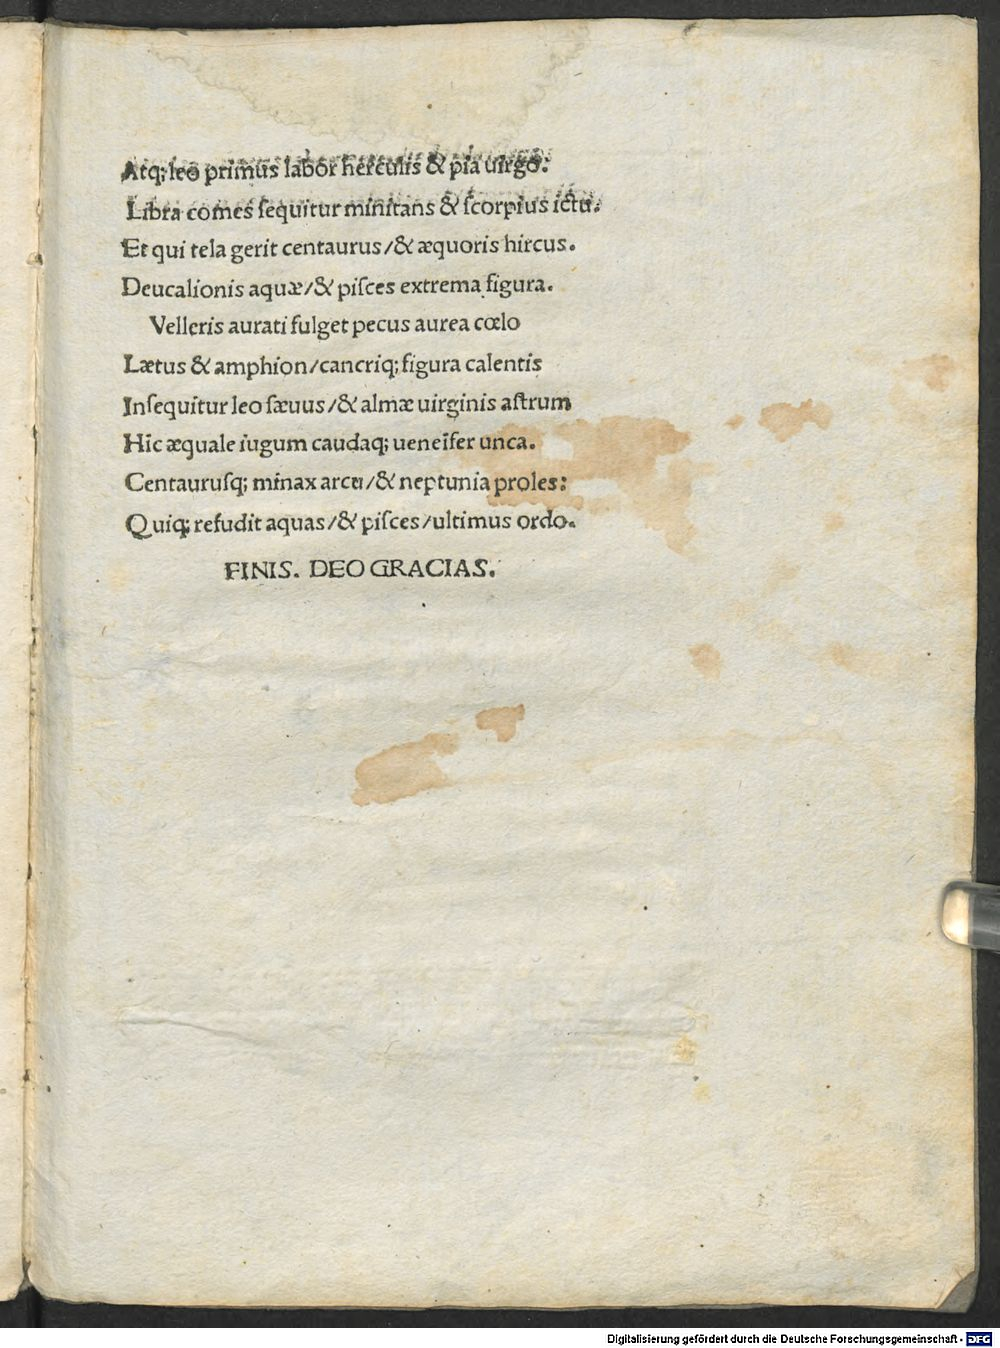 Atq; leo primus labor herculis & pia uirgo.
Libra comes ſequitur minitans & ſcorpius ictu.
Et qui tela gerit centaurus/& æquoris hircus.
Deucalionis aquæ/& piſces extrema figura.
Velleris aurati fulget pecus aurea cœlo
Lætus & amphion/cancriq; figura calentis
Inſequitur leo ſæuus/& almæ uirginis aſtrum
Hic æquale iugum caudaq; ueneifer unca.
Centauruſq; minax arcu/& neptunia proles:
Quiq; refudit aquas/& piſces/ultimus ordo.
FINIS. DEO GRACIAS.
Digitalisierung gefördert durch die Deutsche Forschungsgemeinschaft - DFG